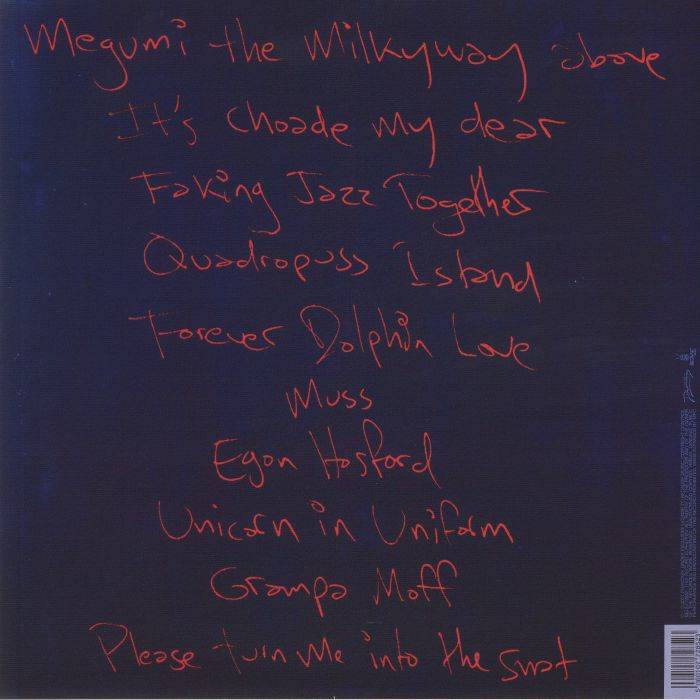 Megumi the Milkyway above
It's choade my dear
Faking Jazz Together
Quadropuss Island
Forever Dolphin Love
Muss
Egon Hosford
Unicorn in Uniform
Grampa Moff
Please turn me into the Snat